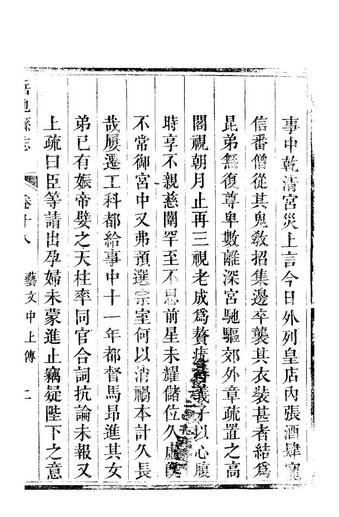 事中乾清宮災上言今日外列皇店內張酒肆寵
信番僧從其鬼教招集邊卒襲其衣裝甚者結為
昆弟無復尊卑數離深宮馳驅郊外章疏置之高
閣視朝月止再三視老成為贅疣義子以心腹
時享不親慈闈罕至不思前星未耀儲位久虛
不常御宮中又弗預選宗室何以消禍本計久長
哉屢遷工科都給事中十一年都督馬昂進其女
弟已有娠帝嬖之天柱率同官合詞抗論未報又
上疏曰臣等請出孕婦未蒙進止竊疑陛下之意
縣志 卷十八 藝文中上傳 二